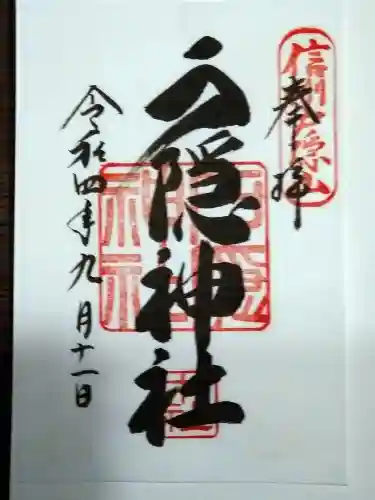 信州戸隠山
奉拝
戸隠神社
令和四年九月十一日